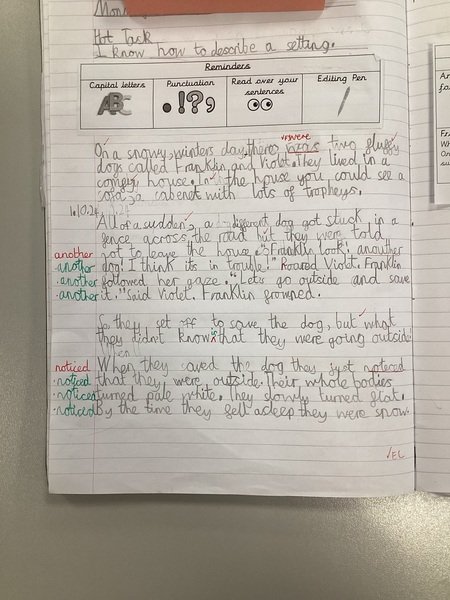 Mon
Hot Task
I know how to describe a setting.
Reminders
Capital letters
Punctuation
Read over your sentences
Editing Pen
ABC
. ! ? ,
On a snowy, winters day, there were two fluffy
dogs called Franklin and Violet. They lived in a
house. In the house you could see a
sofa, a cabenet with lots of tropheys.
All of a sudden, a different dog got stuck in a
fence across the road but they were told
another not to leave the house. "Franklin look! anouther
another dog. I think its in trouble!" Roared Violet. Franklin
another followed her gaze. "Let's go outside and save
another it." Said Violet. Franklin frowned.
So they set off to save the dog, but what
they didn't know is that they were going outside.
noticed When they saved the dog they just noteced
noticed that they were outside. Their whole bodies
noticed turned pale white. They slowly turned flat.
noticed By the time they fell asleep they were snow.
EL